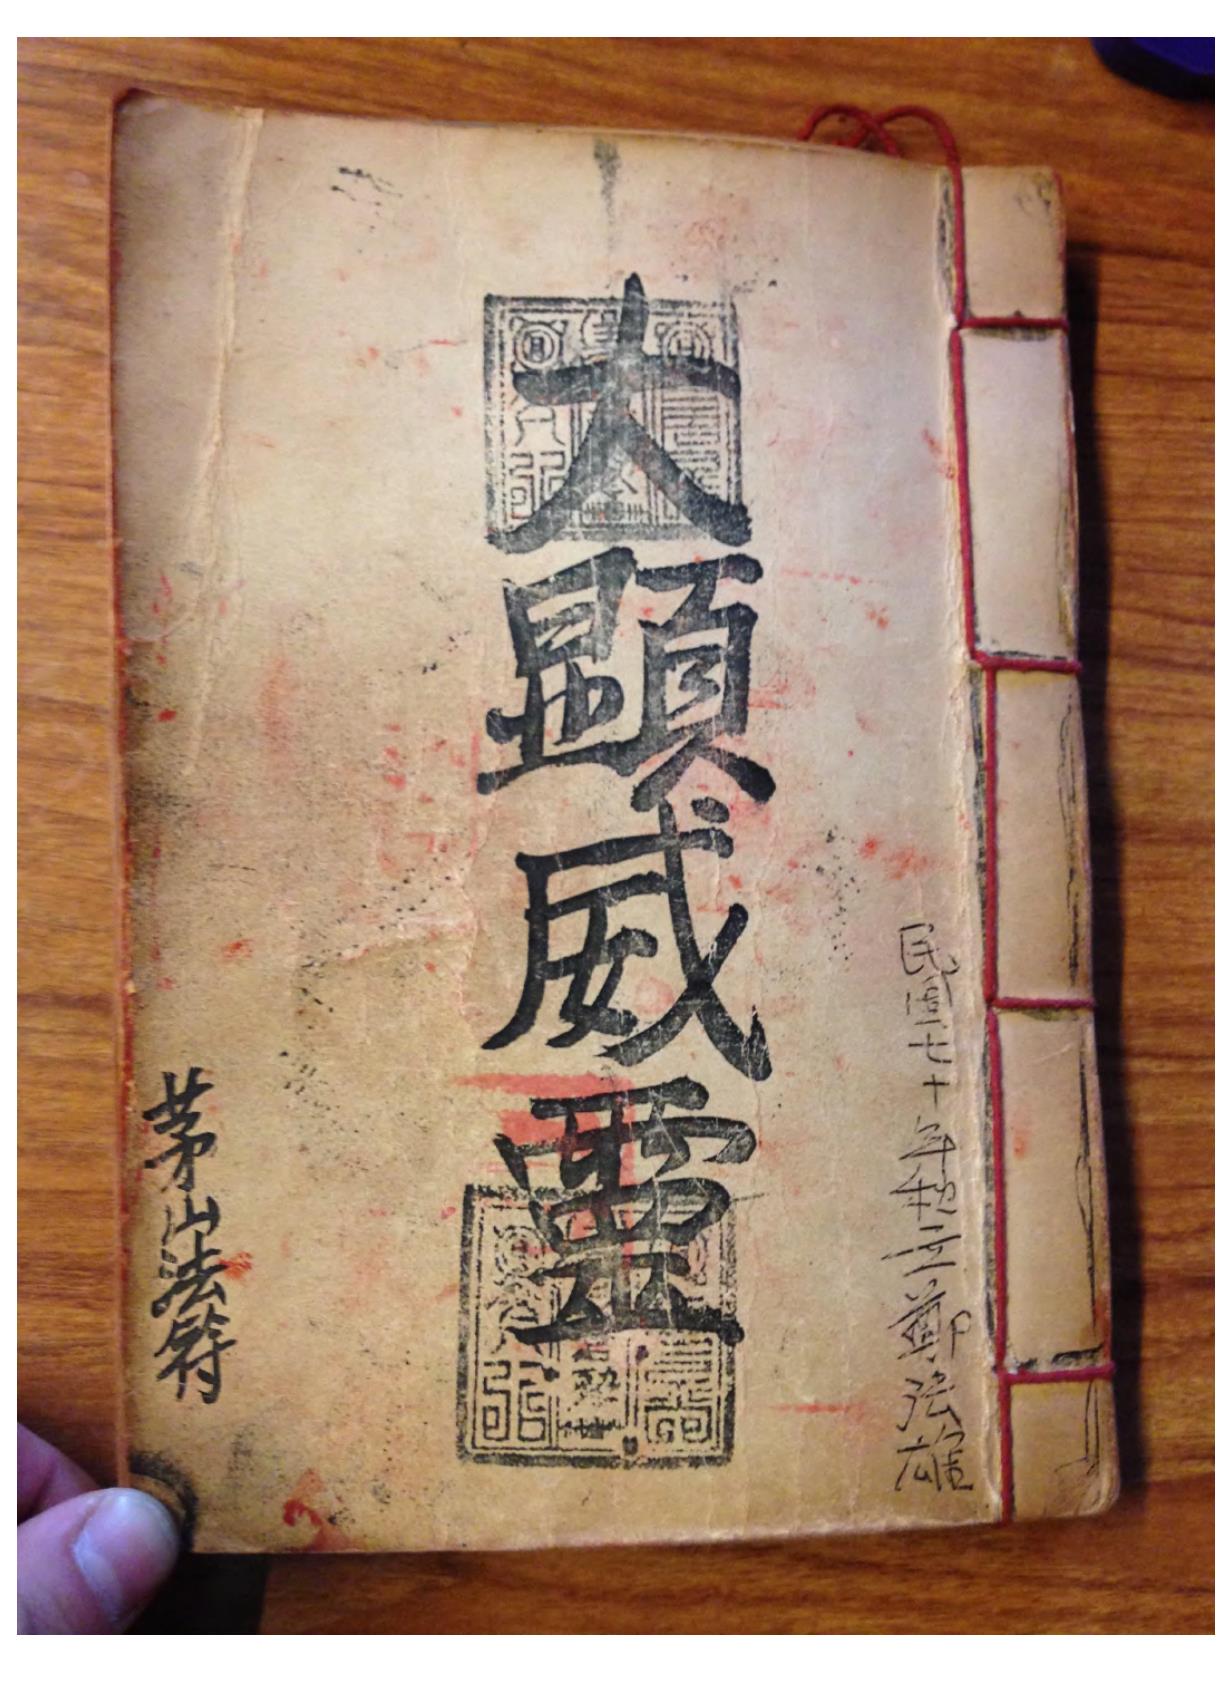 民國七十年立鄭法雄
大顯威靈
茅山法符